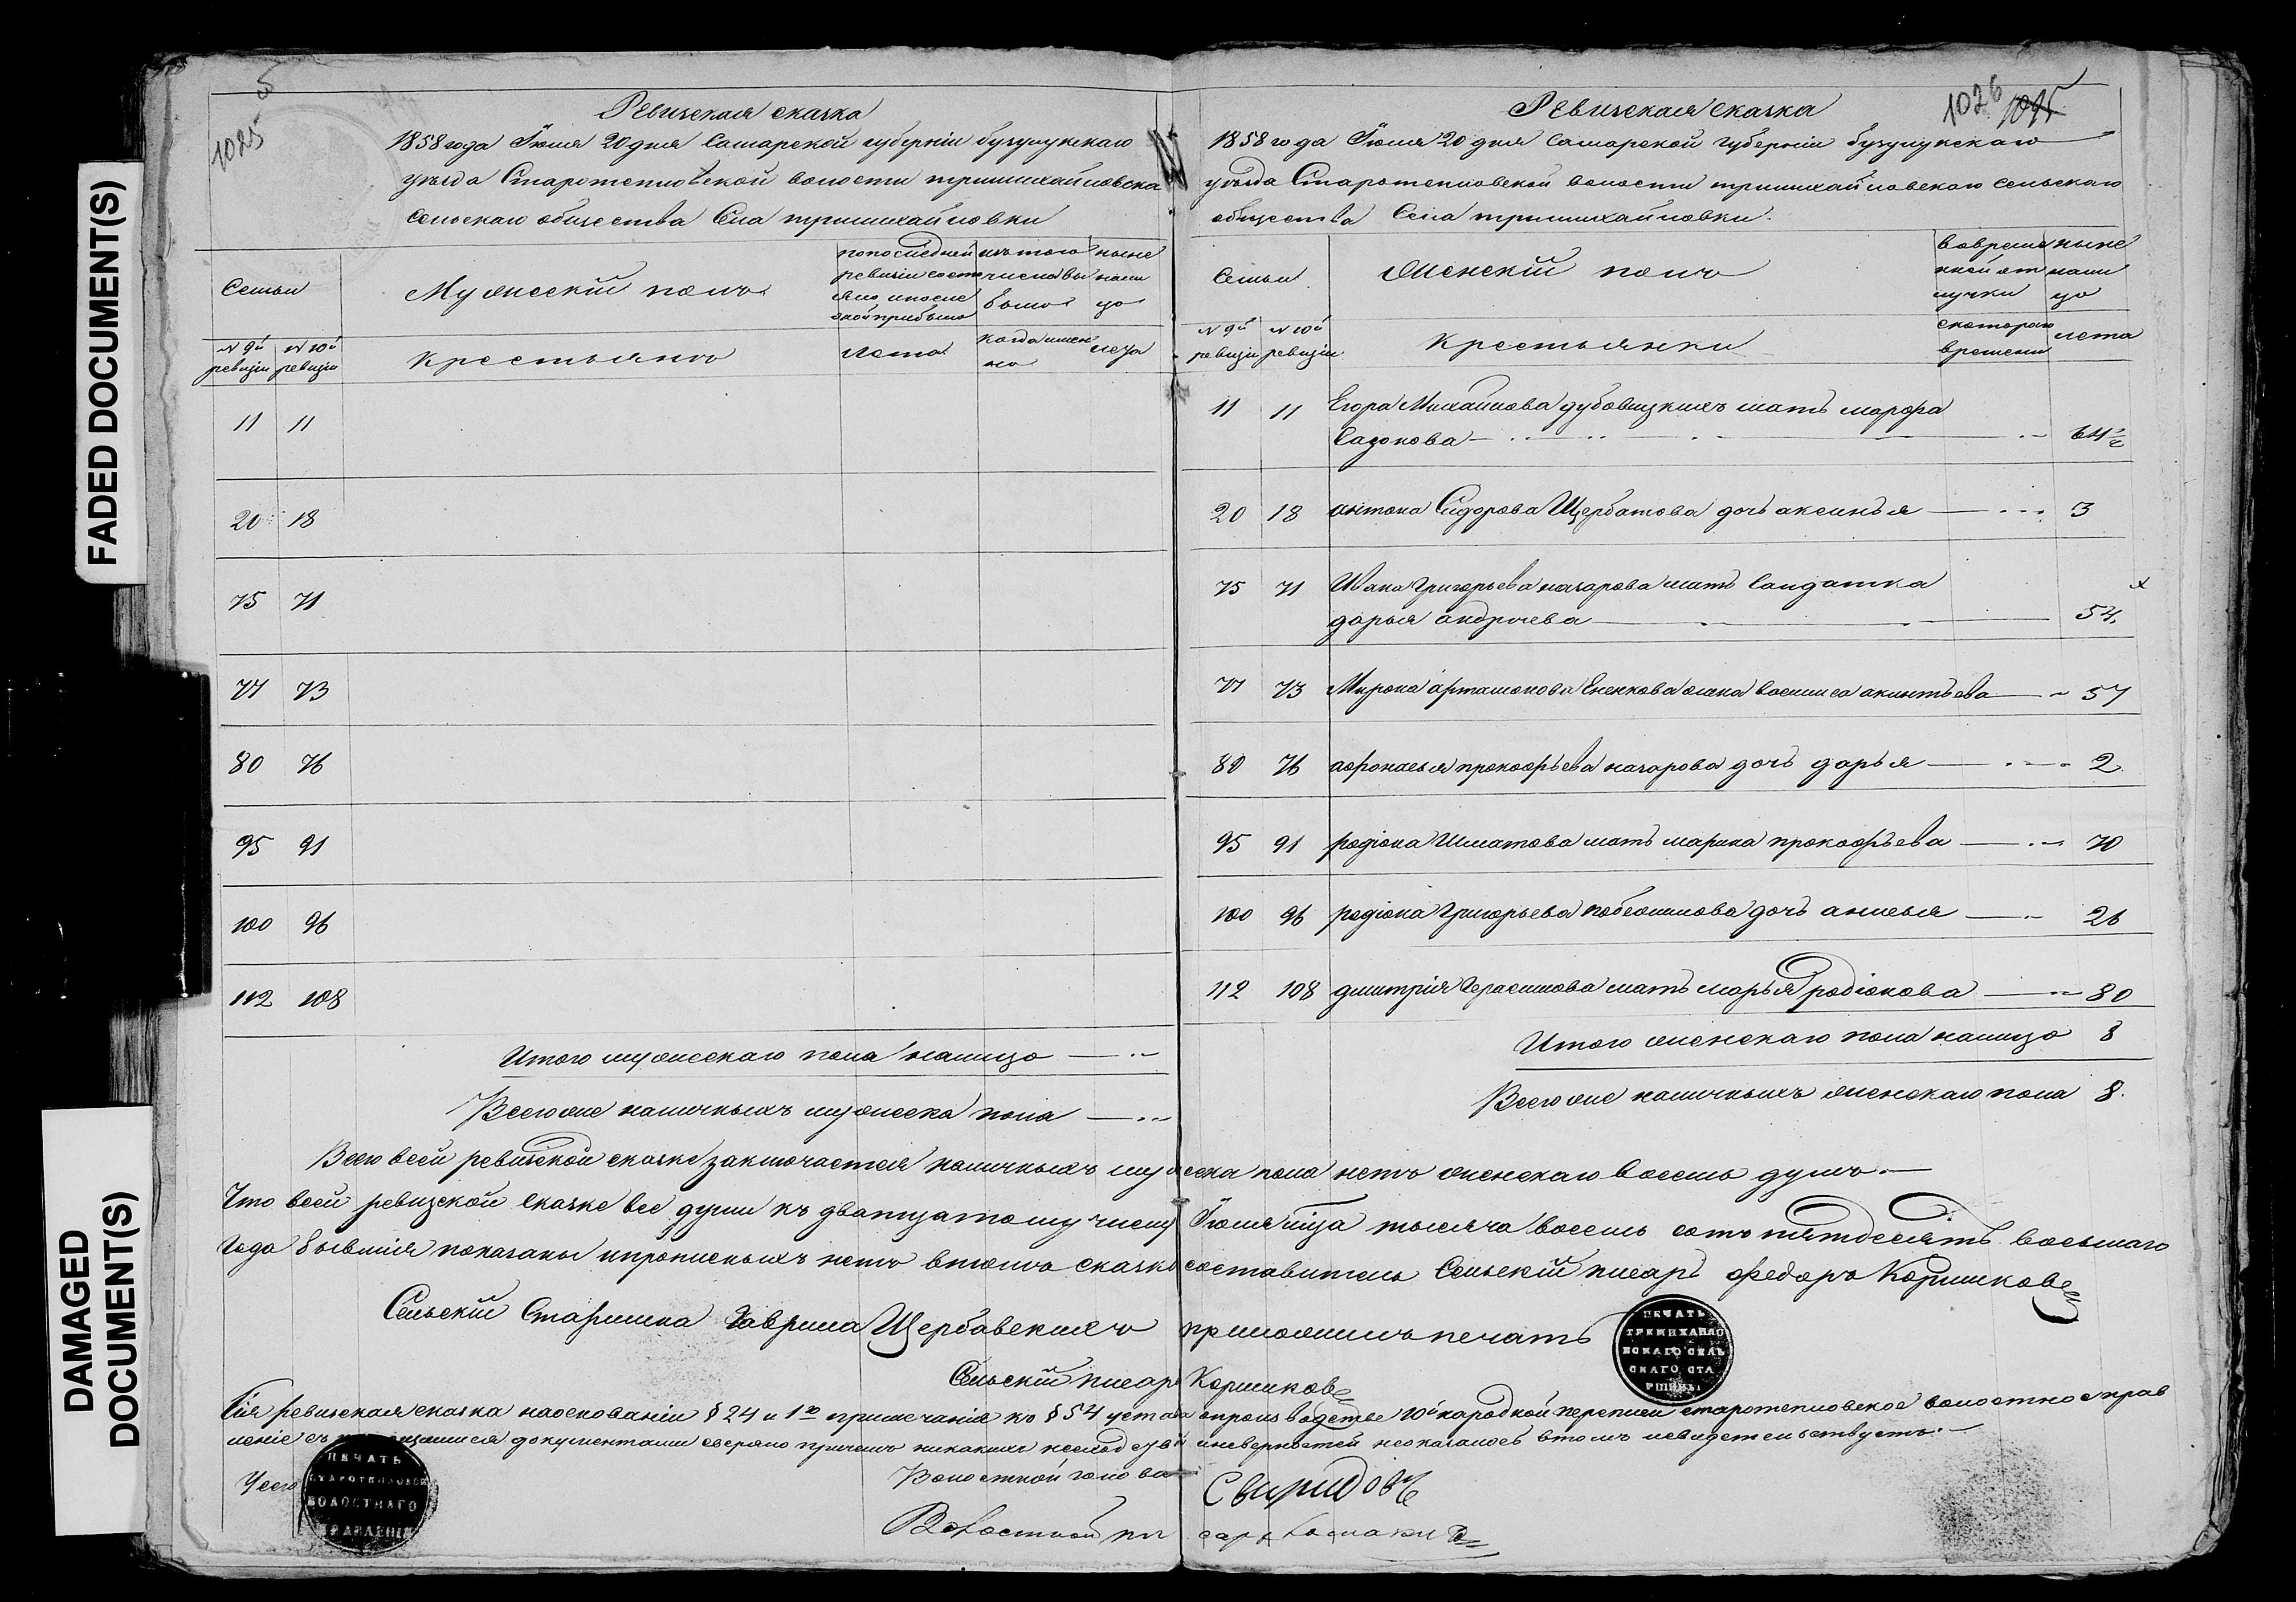 FADED DOCUMENT(S)
DAMAGED
DOCUMENT(S)
1025
Ревизская сказка
1858 года Іюня 20 дня Самарской губерніи бузулукскаго
уѣзда Старотепловской волости тримихайловска
сельскаго общества Села тримихайловки
Семьи
Мужескій полъ
по последней
ревизіи состо
яло и после
оной прибыло
изъ того
числа вы
было
ныне
нали
цо
№ 9й
ревизіи
№ 10й
ревизіи
Крестьянъ
лета
когда имен
но
лета
11 11
20 18
75 71
77 73
80 76
95 91
100 96
112 108
Итого мужескаго пола налицо
Всего же наличныхъ мужеска пола
1026 1025
Ревизская сказка
1858 года Іюня 20 дня Самарской губерніи бузулукскаго
уѣзда Старотепловской волости тримихайловскаго сельскаго
общества Села тримихайловки.
Семьи
Женскій полъ
во време
нной от
лучки
ныне
нали
цо
№ 9й
ревизіи
№ 10й
ревизіи
Крестьянки
скотораго
времени
лета
11 11 Егора Михайлова дубовицкихъ мать марфа
Сазонова 64½
20 18 антона Сидорова Щербатова дочь аксинья 3
75 71 Ивана Григорьева назарова мать Солдатка
дарья андреева 54.
77 73 Мирона артамонова Ененкова жена василиса акинтьева 57
80 76 афонасья прокофьева назарова дочь дарья 2
95 91 родіона Шматова мать марина прокофьева 70
100 96 родіона Григорьева дочь анисья 26
112 108 дмитрія Герасимова мать марья родіонова 80
Итого женскаго пола налицо 8
Всего же наличныхъ женскаго пола 8.
Всего всей ревизской сказке заключается наличныхъ мужеска пола нетъ женскаго восемь душъ.
Что всей ревизской сказке все души къ дватцатому числу Іюня мца тысяча восемь сотъ пятдесятъ восьмаго
года бывшія показаны ипрописныхъ нетъ втомъ сказки составитель Сельскій писарь Федоръ Коршиковъ
Сельскій Старшина Гаврила Щербавскихъ приложилъ печать
ПЕЧАТЬ
ТРЕМИХАЙЛО
ВСКАГО СЕЛЬ
СКАГО СТА
РШИНЫ
Сельскій писарь Коршиковъ
Сія ревизская сказка наоснованіи § 24 и 1го примечанія къ § 54 устава опроизводстве 10й народной переписи старотепловское волостное прав
леніе съ документами сверяно причемъ никакихъ несход и неверностей неоказалось втомъ исвидетельствуетъ.
ПЕЧАТЬ
СТАРОТЕПЛОВСК
ВОЛОСТНАГО
ПРАВЛЕНІЯ
Волостной голова Свиридовъ
Волостной писарь